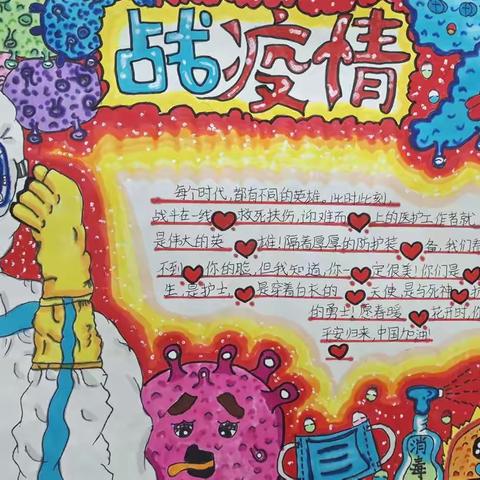 战疫情
每个时代,都有不同的英雄,此时此刻,
战斗在一线救死扶伤,迎难而上的医护工作者就
是伟大的英雄!隔着厚厚的防护装备,我们看
不到你的脸,但我知道,你一定很美!你们是
生,是护士,是穿着白衣的天使,是与死神
的勇士!愿春暖花开时,你
平安归来,中国加油!
消毒